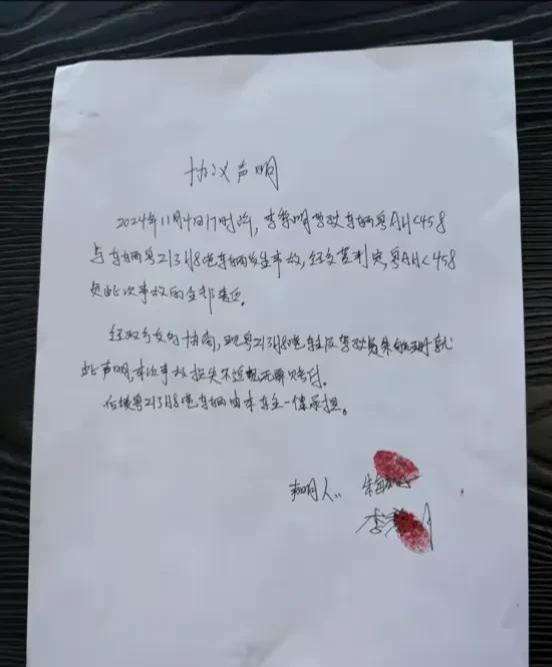 协议声明
2024年11月4日17时许，李 明驾驶车辆粤AH 458
与车辆粤Z13H8电车辆发生事故，经交警判定，粤AH 458
负此次事故的全部责任。
经双方友好协商，现粤Z13H8电车主及驾驶员朱 就
此声明，本次事故损失不追 无需赔付。
后续粤Z13H8电车辆由本车主一律承担。
声明人：朱
李 明